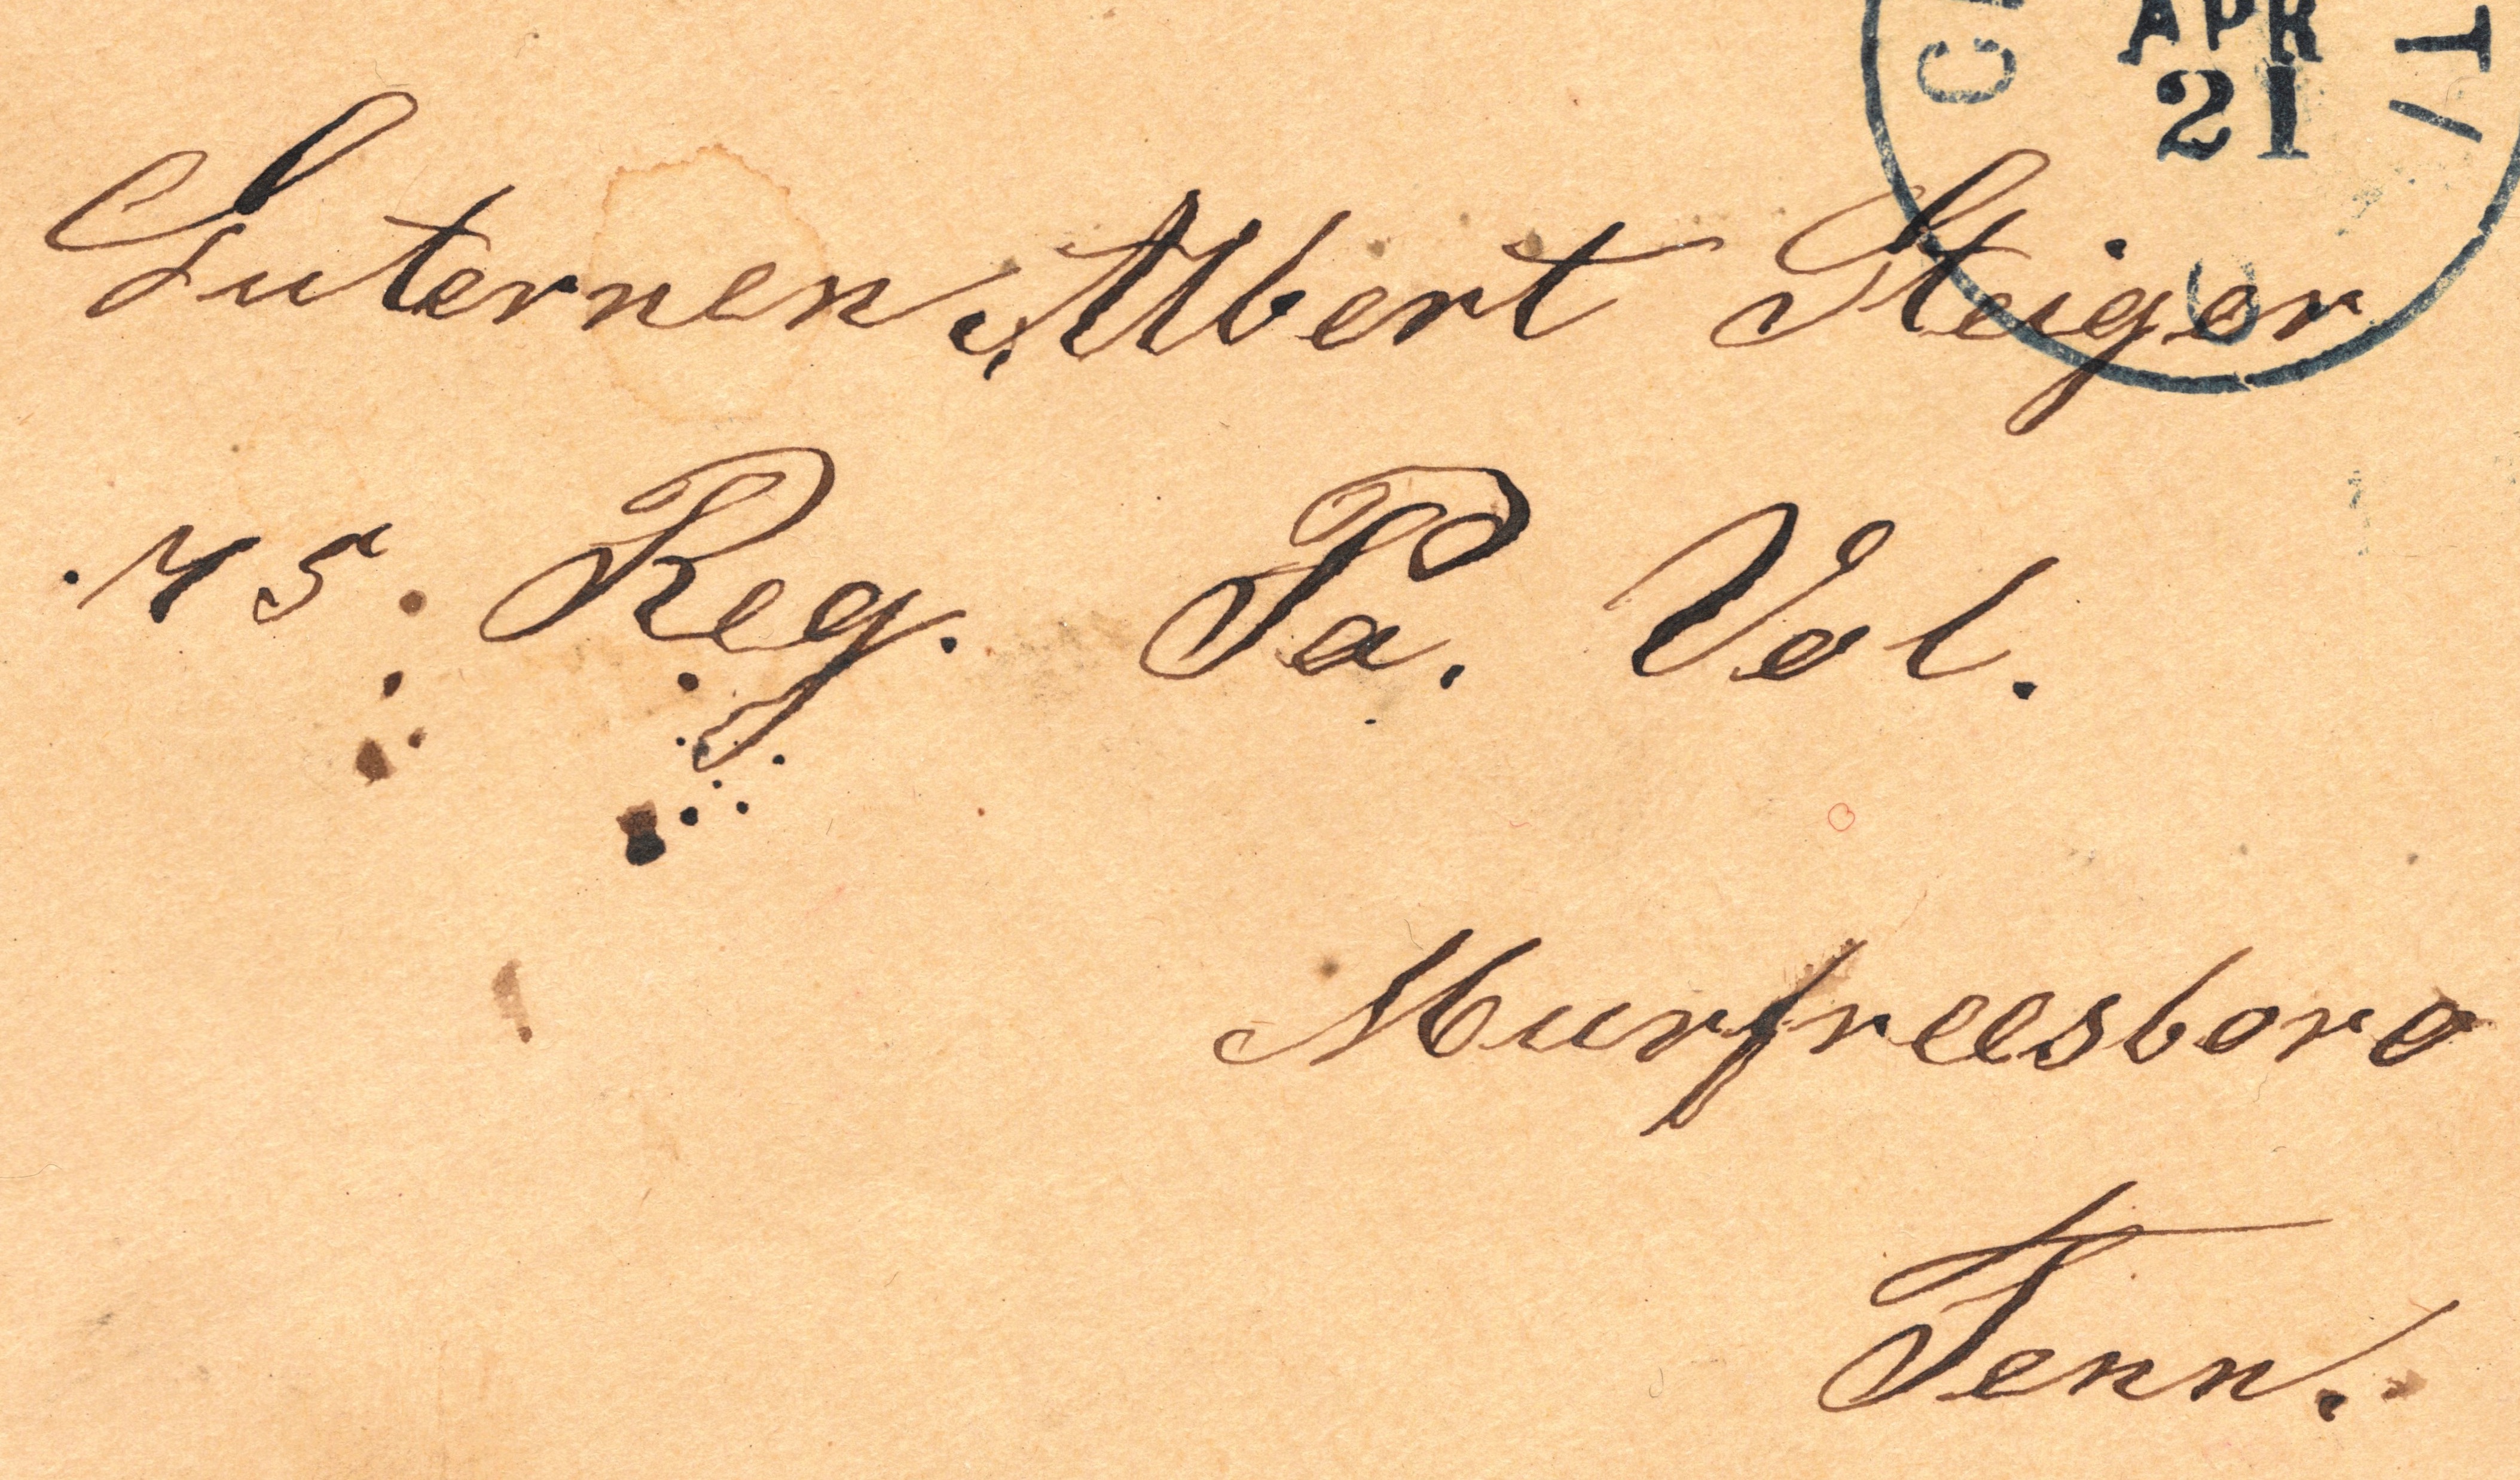 APR
21
Luternen, Albert Steiger
75. Reg. Pa. Vol.
Murfreesboro
Tenn.